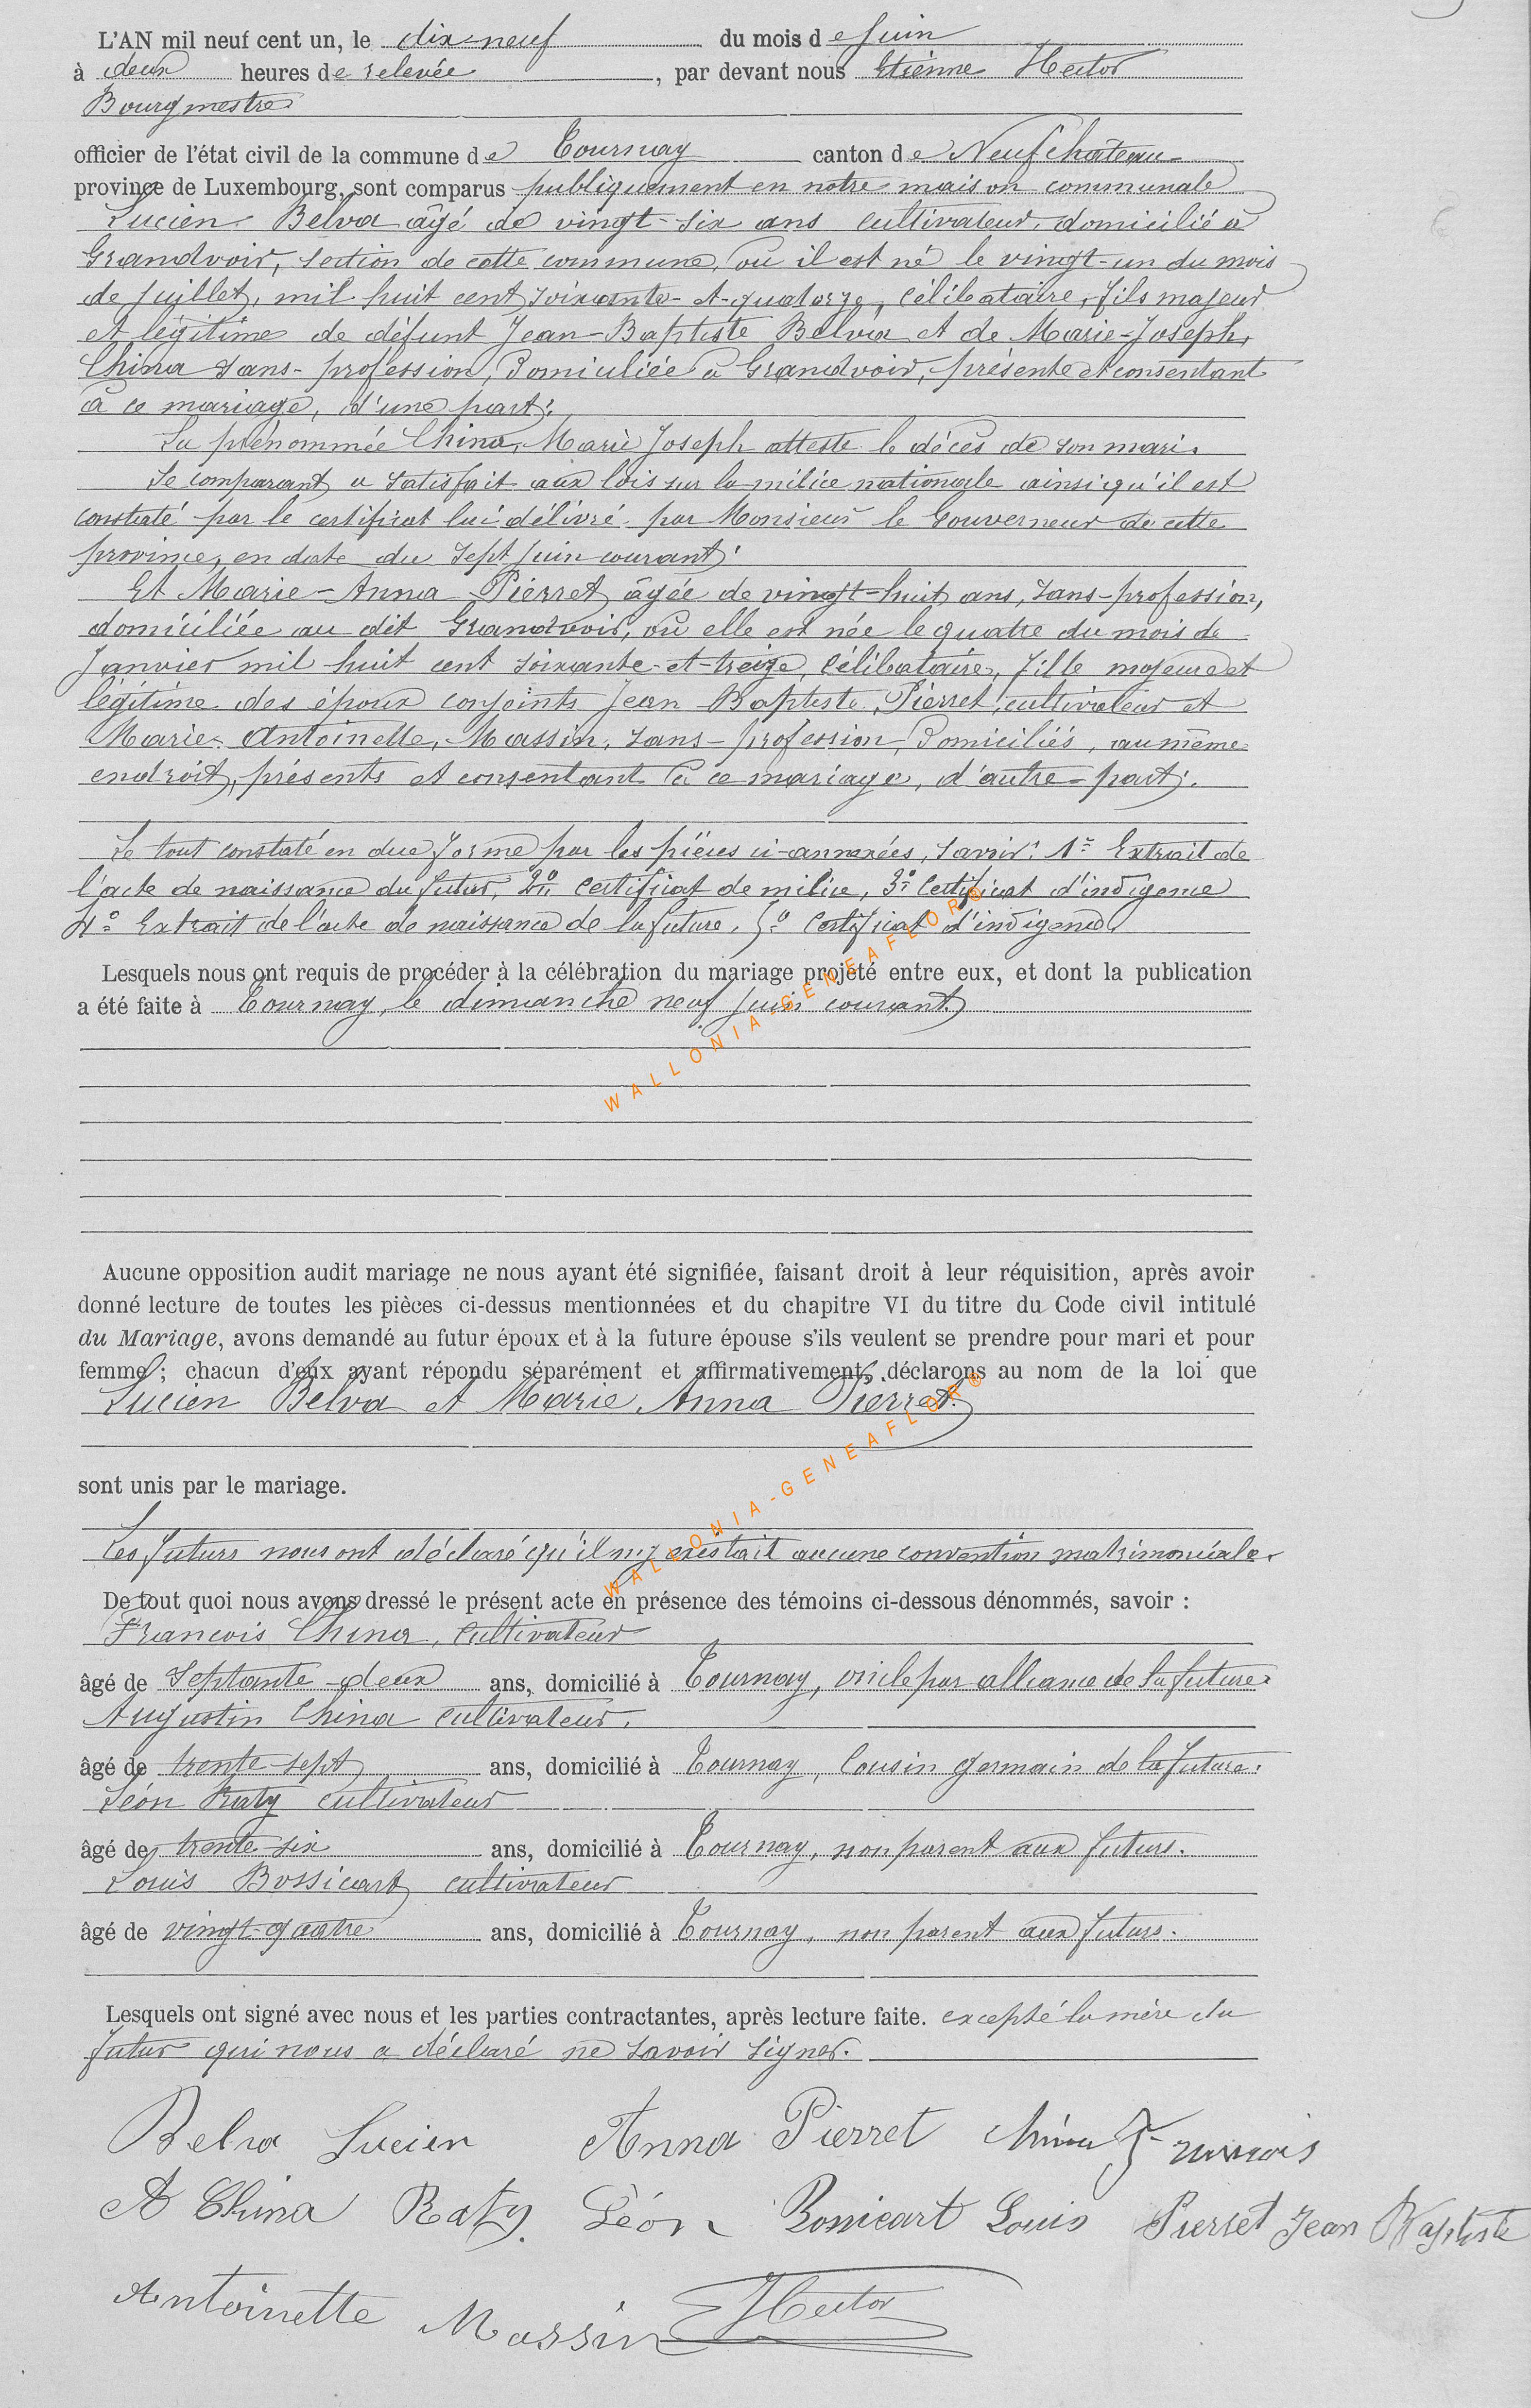 L'AN mil neuf cent un, le dix-neuf du mois de Juin
à deux heures de relevée, par devant nous Etienne Hector
Bourgmestre
officier de l'état civil de la commune de Tournay canton de Neufchâteau
province de Luxembourg, sont comparus publiquement en notre maison communale
Lucien Belva âgé de vingt-six ans cultivateur, domicilié à
Grandvoir, section de cette commune, où il est né le vingt-un du mois
de Juillet, mil huit cent soixante-et-quatorze, célibataire, fils majeur
et légitime de défunt Jean-Baptiste Belva et de Marie-Joseph,
China sans-profession, Domiciliée à Grandvoir, présente et consentant
à ce mariage, d'une part;
La prénommée China, Marie Joseph atteste le décès de son mari.
Le comparant a satisfait aux lois sur la milice nationale ainsi qu'il est
constaté par le certificat lui délivré par Monsieur le Gouverneur de cette
province, en date du sept Juin courant;
Et Marie-Anna Pierret âgée de vingt-huit ans, sans-profession,
domiciliée au dit Grandvoir, où elle est née le quatre du mois de
Janvier mil huit cent soixante-et-treize, célibataire, fille majeure et
légitime des époux conjoints Jean Baptiste Pierret, cultivateur et
Marie Antoinette, Massin, sans-profession, Domiciliés, au même
endroit, présents et consentant à ce mariage, d'autre-part;.
Le tout constaté en due forme par les pièces ci-annexées, savoir: 1° Extrait de
l'acte de naissance du futur, 2° certificat de milice, 3° Certificat d'indigence
4° Extrait de l'acte de naissance de la future, 5° Certificat d'indigence
Lesquels nous ont requis de procéder à la célébration du mariage projeté entre eux, et dont la publication
a été faite à Tournay, le dimanche neuf Juin courant.
WALLONIA-GENEAFLOR®
Aucune opposition audit mariage ne nous ayant été signifiée, faisant droit à leur réquisition, après avoir
donné lecture de toutes les pièces ci-dessus mentionnées et du chapitre VI du titre du Code civil intitulé
du Mariage, avons demandé au futur époux et à la future épouse s'ils veulent se prendre pour mari et pour
femme; chacun d'eux ayant répondu séparément et affirmativement, déclarons au nom de la loi que
Lucien Belva et Marie Anna Pierret.
WALLONIA-GENEAFLOR®
sont unis par le mariage.
Les futurs nous ont déclaré qu'il n'y existait aucune convention matrimoniale.
De tout quoi nous avons dressé le présent acte en présence des témoins ci-dessous dénommés, savoir :
François China, cultivateur
âgé de Septante-deux ans, domicilié à Tournay, oncle par alliance de la future
Augustin China cultivateur.
âgé de trente-sept ans, domicilié à Tournay, Cousin germain de la future.
Léon Raty cultivateur
âgé de trente-six ans, domicilié à Tournay, non parent aux futurs.
Louis Bossicart cultivateur
âgé de vingt-quatre ans, domicilié à Tournay, non parent aux futurs.
Lesquels ont signé avec nous et les parties contractantes, après lecture faite. excepté la mère du
futur qui nous a déclaré ne savoir signer.
Belva Lucien Anna Pierret China François
A China Raty Léon Bossicart Louis Pierret Jean Baptiste
Antoinette Massin Hector